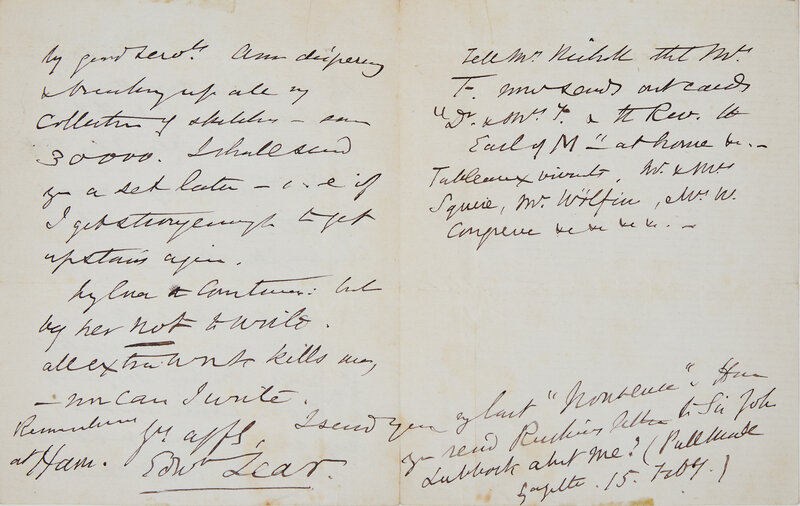 by good Servts. Am dispersing
& breaking up all my
Collection of sketches — some
30000. I shall send
you a set later — i.e if
I get strong enough to get
upstairs again.
My love to Contessa: but
beg her not to write.
all extra work kills me,
— nor can I write.
Remembrance
at Ham.
Yrs affly,
Edwd Lear.
Tell Mrs that Mrs
F. now sends out cards
"Dr. & Mrs F. & the Rev. the
Earl of M" at home &c. —
Tableaux vivants, Mr. & Mrs
Squire, Mr Wölflin, Mrs W.
Congreve &c &c &c &c. —
I send you my last "Nonsense". Have
you read Ruskin's letter to Sir John
Lubbock about me? (Pall Mall
Gazette. 15. Feby.)